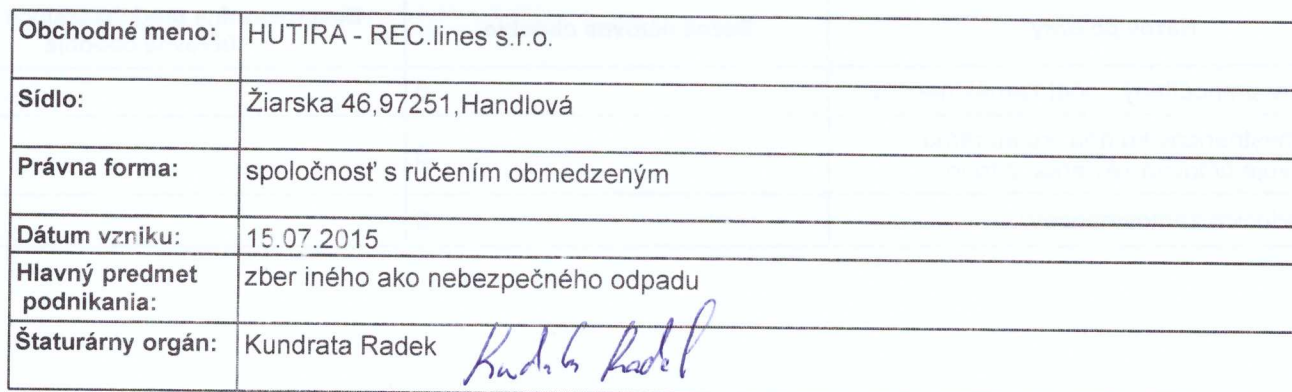 Obchodné meno: HUTIRA - REC.lines s.r.o.
Sídlo: Žiarska 46,97251,Handlová
Právna forma: spoločnosť s ručením obmedzeným
Dátum vzniku: 15.07.2015
Hlavný predmet podnikania: zber iného ako nebezpečného odpadu
Štaturárny orgán: Kundrata Radek Kundrata Radek